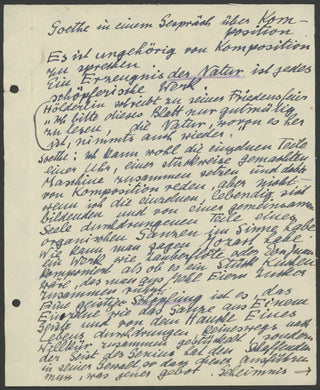 Goethe in einem Gespräch über Kom-
position
Es ist ungehörig von Komposition
zu sprechen
Ein Erzeugnis der Natur ist jedes
schöpferische Werk.
Hölderlin schreibt zu seiner Friedensfeier
"Ich bitte dieses Blatt nur gutmütig
zu lesen, die Natur, wovon es her
ist, nimmts auch wieder."
Goethe: Ich kann wohl die einzelnen Teile
einer Uhr, einer stückweise gemachten
Maschine zusammen setzen und dabei
von Komposition reden, aber nicht
wenn ich die einzelnen, lebendig sich
bildenden und von einer gemeinsamen
Seele durchdrungenen Teile eines
organischen Ganzen im Sinne habe
Wie kann man sagen Mozart habe
ein Werk wie Zauberflöte oder Don Juan
komponiert als ob es ein Stück Kuchen
wäre, das man aus Eiern Zucker
zusammen rührt.
Eine geistige Schöpfung ist es, das
Einzelne wie das Ganze aus Einem
Geiste und von dem Hauche Eines
Lebens durchdrungen keineswegs nach
Willkür zusammen gestückelt sondern
der Geist des Genius hat den Schaffenden
in seiner Gewalt so dass dieser ausführen
muss, was jener gebot. Geheimnis →